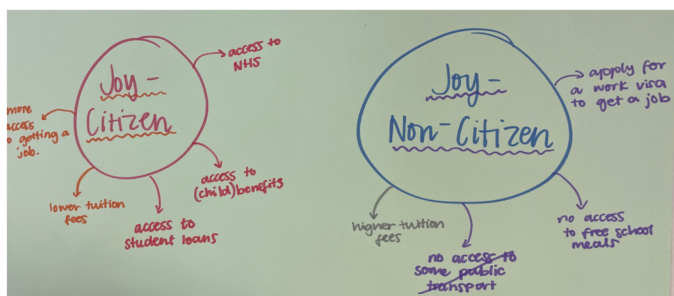 Joy -
Citizen
access to
NHS
more
access
to getting a
job.
lower tuition
fees
access to
student loans
access to
(child) benefits
Joy -
Non-Citizen
apply for
a work visa
to get a job
higher tuition
fees
no access to
some public
transport
no access
to free school
meals